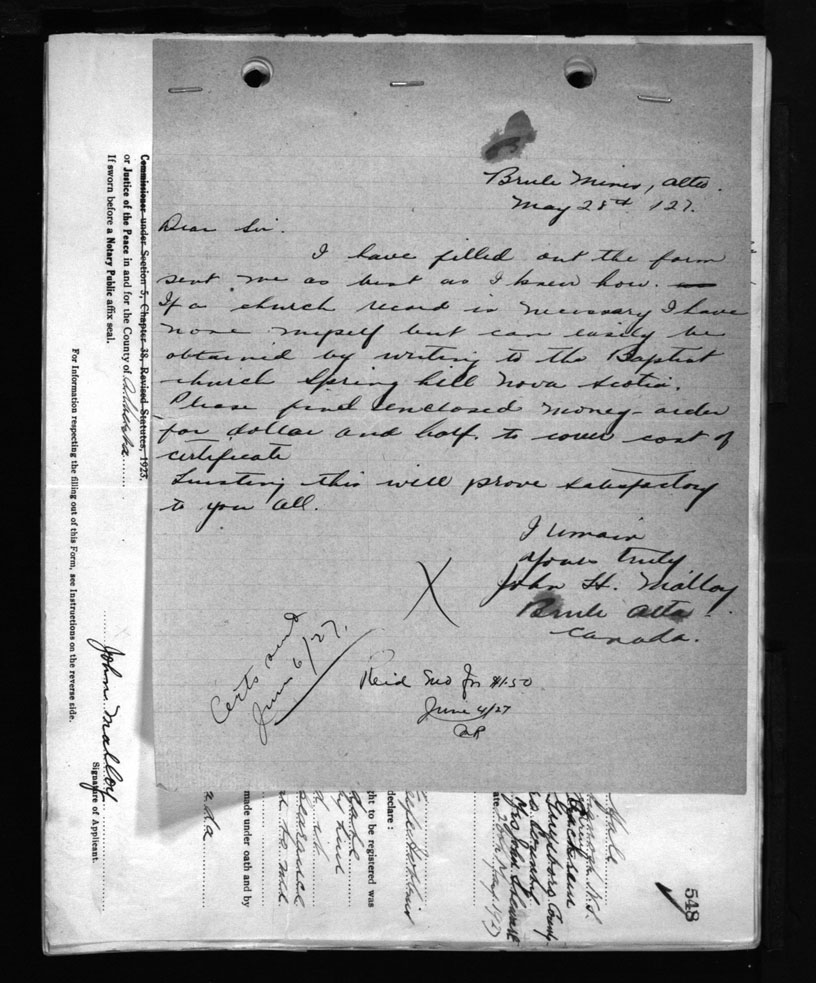 Brule Mines, Alta.
May 28th 127.
Dear Sir.
I have filled out the form
sent me as best as I knew how.
If a church record is necessary I have
none myself but can easily be
obtained by writing to the Baptist
church Spring hill Nova Scotia.
Please find enclosed money-order
for dollar and half. to cover cost of
certificate
Trusting this will prove satisfactory
to you all.
I remain
yours truly
John H. Malloy
Brule Alta.
Canada.
X
Certs sent
June 6/27.
for $1.50
June 4/27
Commissioner under Section 5, Chapter 38, Revised Statutes, 1923.
or Justice of the Peace in and for the County of
If sworn before a Notary Public affix seal.
For Information respecting the filling out of this Form, see Instructions on the reverse side.
John Malloy
Signature of Applicant.
made under oath and by
ght to be registered was
declare :
Male
N.S.
Guysboro County
Mrs John
548